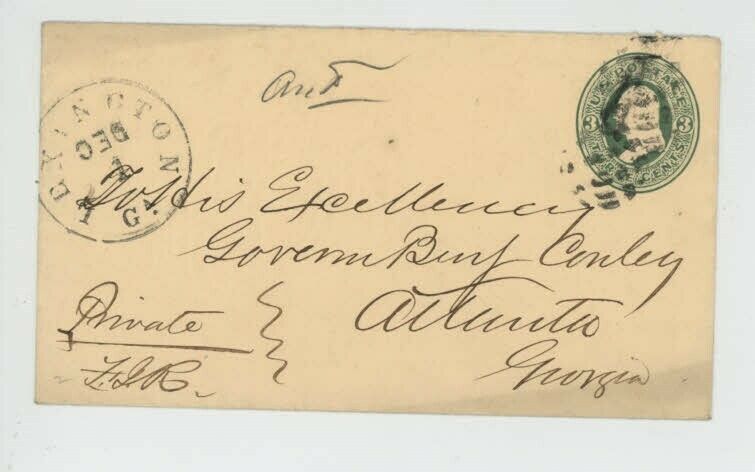 Ans
LEXINGTON
DEC
GA.
U.S. POSTAGE
3 3
THREE CENTS
To His Excellency
Govern Benj Conley
Atlanta
Georgia
Private